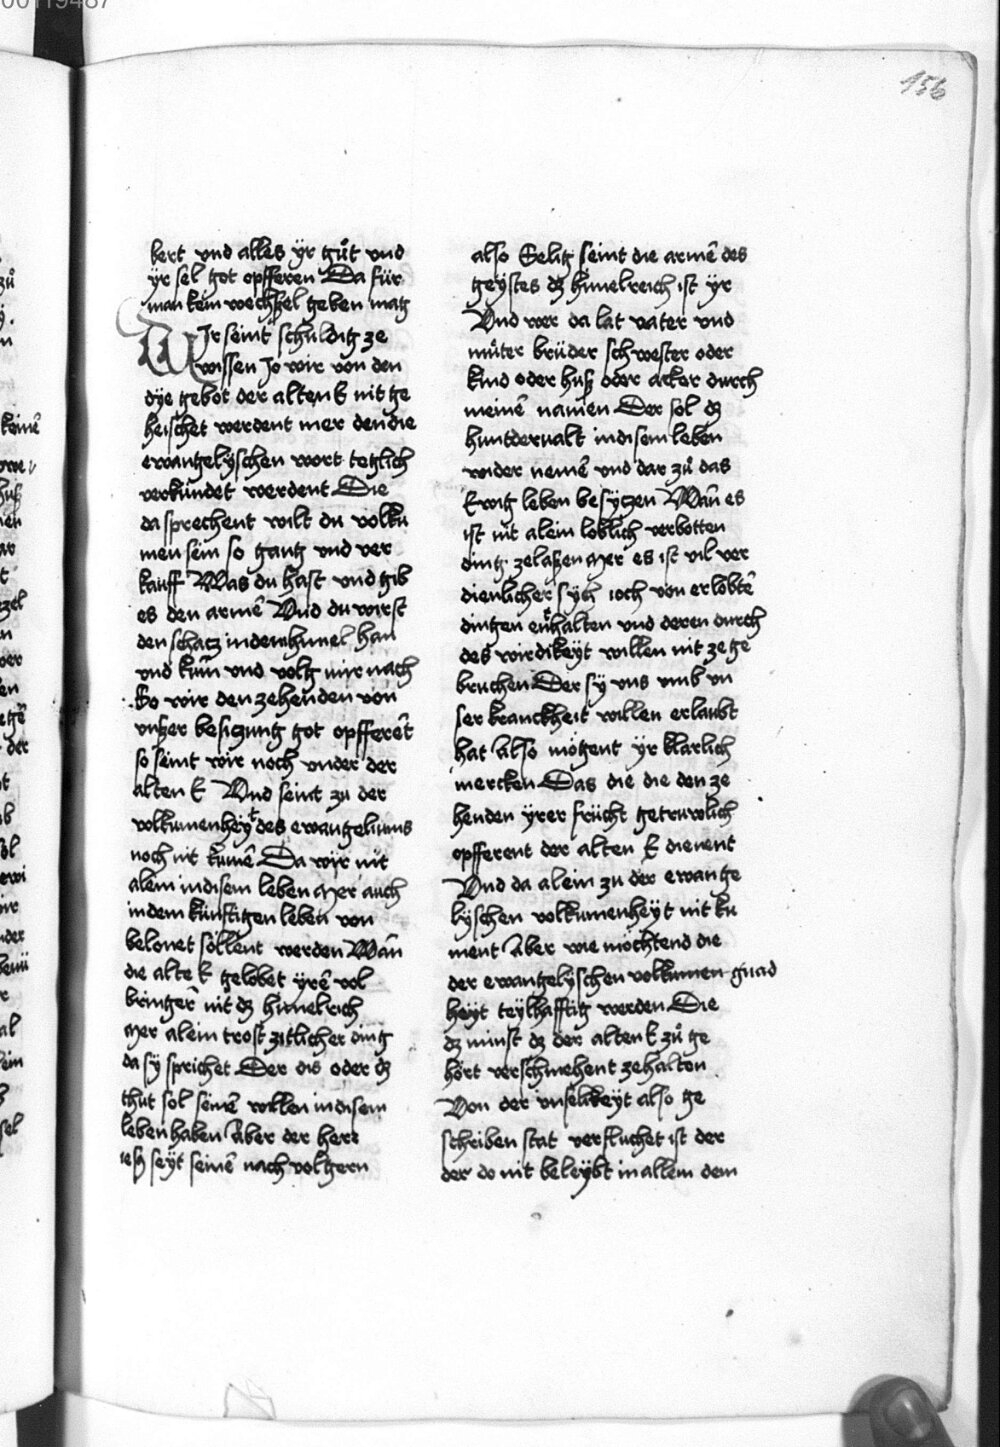 156
bert vnd alles yr guͦt vnd
yr sel got opfferen Da fúr
man kein wechssel geben mag
WJr seint schuldig ze
wissen Jo wir von den
dye gebot der alten E nit ge
heischet werdent mer den die
ewangelyschen wort teglich
verkúndet werdent Die
da sprechent wilt du volku
men sein so gang vnd ver
kauff Was du hast vnd gib
es den armē Vnd du wirst
den schatz in dem himel han
vnd kum vnd volg mir nach
So wir den zehenden von
vnsser besiczung got opfferēt
so seint wir noch vnder der
alten E Vnd seint zu der
volkumenheyt des ewangeliums
noch nit kumē Da wir nit
alein in disem leben Mer auch
in dem kúnfftigen leben von
belonet söllent werden Wān
die alte E gelobet yrē vol
bringer nit dz himelrich
Mer alein trost zitlicher ding
da sy sprichet Der dis oder dz
thut sol seinē willen in disem
leben haben Aber der herr
iesus seyt seinē nach volgern
also Selig seint die armē des
geystes dz himelreich ist yr
Vnd wer da lat vater vnd
muͦter brúder schwester oder
kind oder huss oder acker durch
meinē namen Der sol dz
huntdervalt in disem leben
wider nemē vnd dar zuͦ das
Ewig leben besyczen Wān es
ist nit alein loblich verbotten
ding zelassen Mer es ist vil ver
dienlicher sych ioch von erlobtē
dingen enthalten vnd deren durch
des wirdikeyt willen nit ze ge
bruchen Der sy vns vmb vn
ser kranckheit willen erlaubt
hat Also mögent yr klarlich
mercken Das die die den ze
henden yrer frúcht getruwlich
opfferent der alten E dienent
Vnd da alein zu der ewange
lyschen volkumenheyt nit ku
ment Aber wie möchtend die
der ewangelyschen volkumen gnad
heyt teylhafftig werden Die
dz minst dz der alten E zuͦ ge
hört verschmehent zehalten
Von der vnselikeyt also ge
schriben stat verfluchet ist der
der do nit beleybt in allem dem